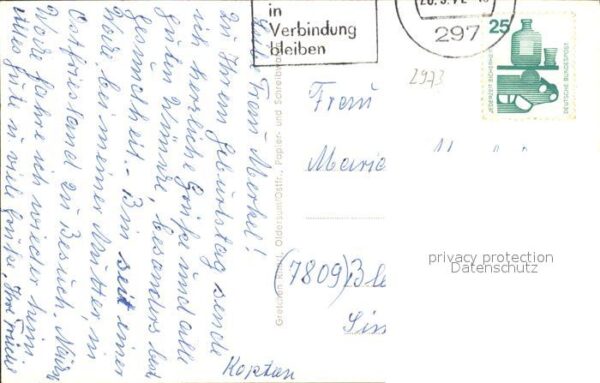 in
Verbindung
bleiben
297
25
JEDERZEIT SICHERHEIT
DEUTSCHE BUNDESPOST
2973
Frau
Maria
(7809) Ble
Sim
privacy protection
Datenschutz
Oldersum/Ostfr., Papier- und Schreibw
Liebe Frau Merkel!
Zu Ihrem Geburtstag sende
ich herzliche Grüße und alle
guten Wünsche, besonders best
Gesundheit. - Bin seit einer
Woche bei meiner Mutter, in
Ostfriesland zu Besuch. Nächste
Woche fahre ich wieder heim.
Alles Gute u. viele Grüße, Ihre